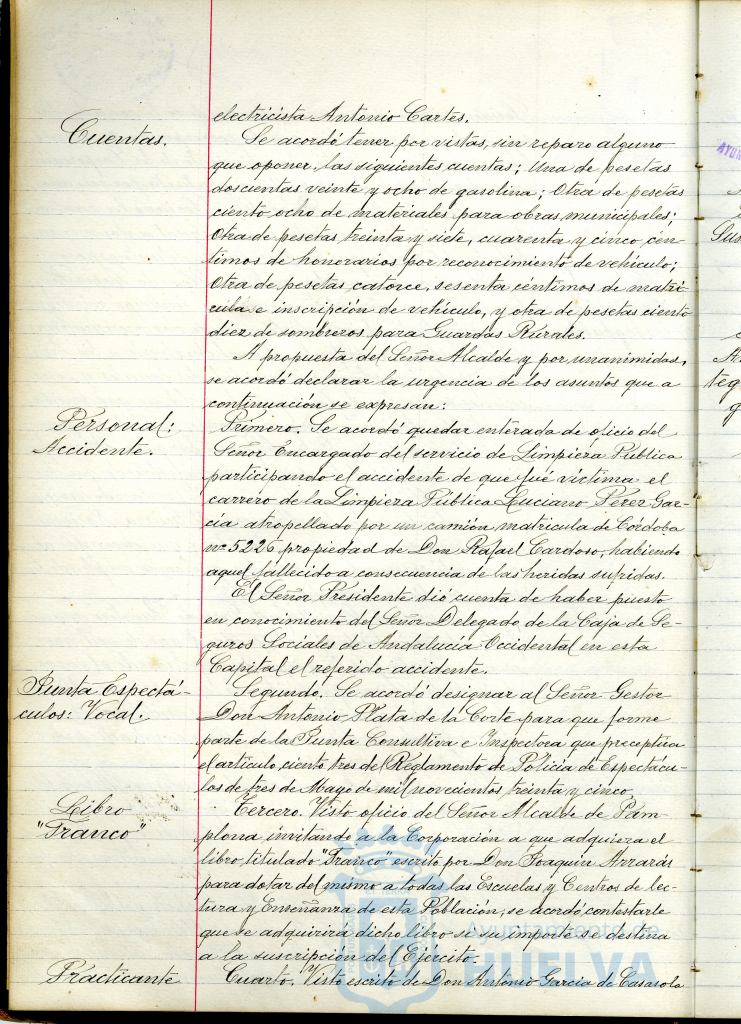 electricista Antonio Cartes.
Cuentas.
Se acordó tener por vistas, sin reparo alguno
que oponer, las siguientes cuentas; Una de pesetas
doscientas veinte y ocho de gasolina; Otra de pesetas
ciento ocho de materiales para obras municipales;
Otra de pesetas treinta y siete, cuarenta y cinco cén-
timos de honorarios por reconocimiento de vehículo;
Otra de pesetas catorce, sesenta céntimos de matrí-
cula e inscripción de vehículo, y otra de pesetas ciento
diez de sombreros para Guardas Rurales.
A propuesta del Señor Alcalde y por unanimidad,
se acordó declarar la urgencia de los asuntos que a
continuación se expresan:
Personal:
Accidente.
Primero. Se acordó quedar enterada de oficio del
Señor Encargado del servicio de Limpieza Pública
participando el accidente de que fué víctima el
carrero de la Limpieza Pública Luciano Pérez Gar-
cía atropellado por un camión matrícula de Córdoba
nº 5226 propiedad de Don Rafael Cardoso, habiendo
aquel fallecido a consecuencia de las heridas sufridas.
El Señor Presidente dió cuenta de haber puesto
en conocimiento del Señor Delegado de la Caja de Se-
guros Sociales de Andalucía Occidental en esta
Capital el referido accidente.
Junta Espectá-
culos: Vocal.
Segundo. Se acordó designar al Señor Gestor
Don Antonio Plata de la Corte para que forme
parte de la Junta Consultiva e Inspectora que preceptúa
el artículo ciento tres del Reglamento de Policía de Espectácu-
los de tres de Mayo de mil novecientos treinta y cinco.
Libro
"Franco"
Tercero. Visto oficio del Señor Alcalde de Pam-
plona invitando a la Corporación a que adquiera el
libro, titulado "Franco" escrito por Don Joaquín Arrarás
para dotar del mismo a todas las Escuelas y Centros de lec-
tura y Enseñanza de esta Población, se acordó contestarle
que se adquirirá dicho libro si su importe se destina
a la suscripción del Ejército.
Practicante
Cuarto. Visto escrito de Don Antonio García de Casasola
Ayuntamiento de
HUELVA